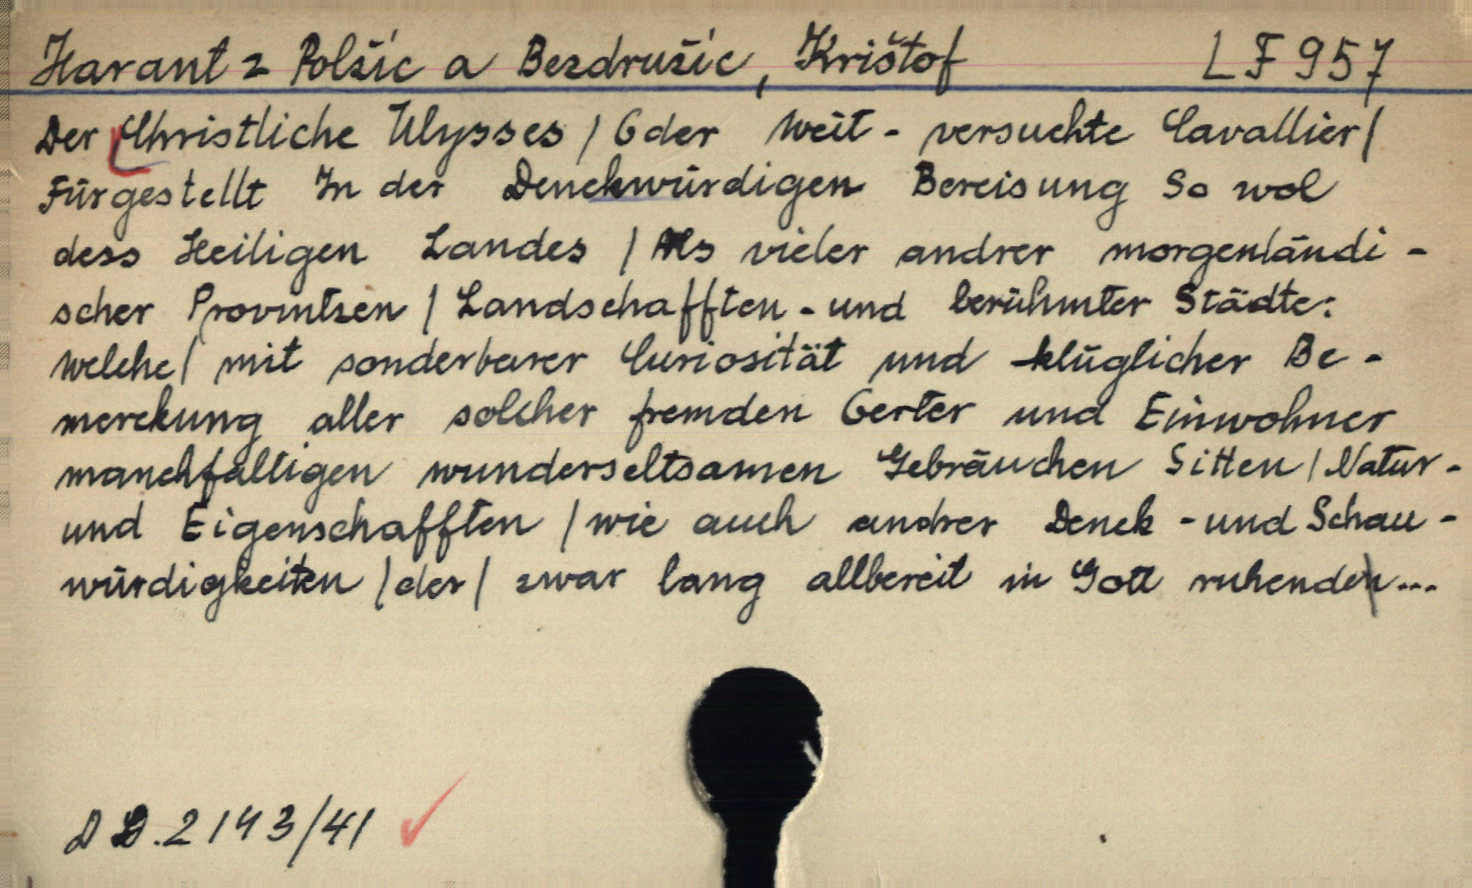 Harant z Polžic a Bezdružic, Krištof LF 957
Der Christliche Ulysses / Oder Weit - versuchte Cavallier /
Fürgestellt In der Denckwürdigen Bereisung So wol
dess Heiligen Landes / Als vieler andrer morgenländi -
scher Provintzen / Landschafften - und berühmter Städte:
Welche / mit sonderbarer Curiosität und klüglicher Be -
merckung aller solcher fremden Oerter und Einwohner
manchfältigen wunderseltsamen Gebräuchen Sitten / Natur -
und Eigenschafften / wie auch andrer Denck - und Schau -
würdigkeiten / der / zwar lang allbereit in Gott ruhende...
D D. 2143/41